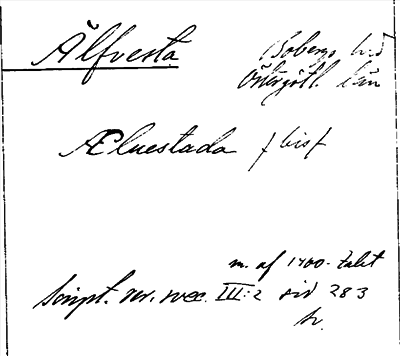 Älfvesta
Bobergs hd
Östergötl. län
Æluestada (bis)
m. af 1400-talet
Script. rer. svec. III:2 sid 283